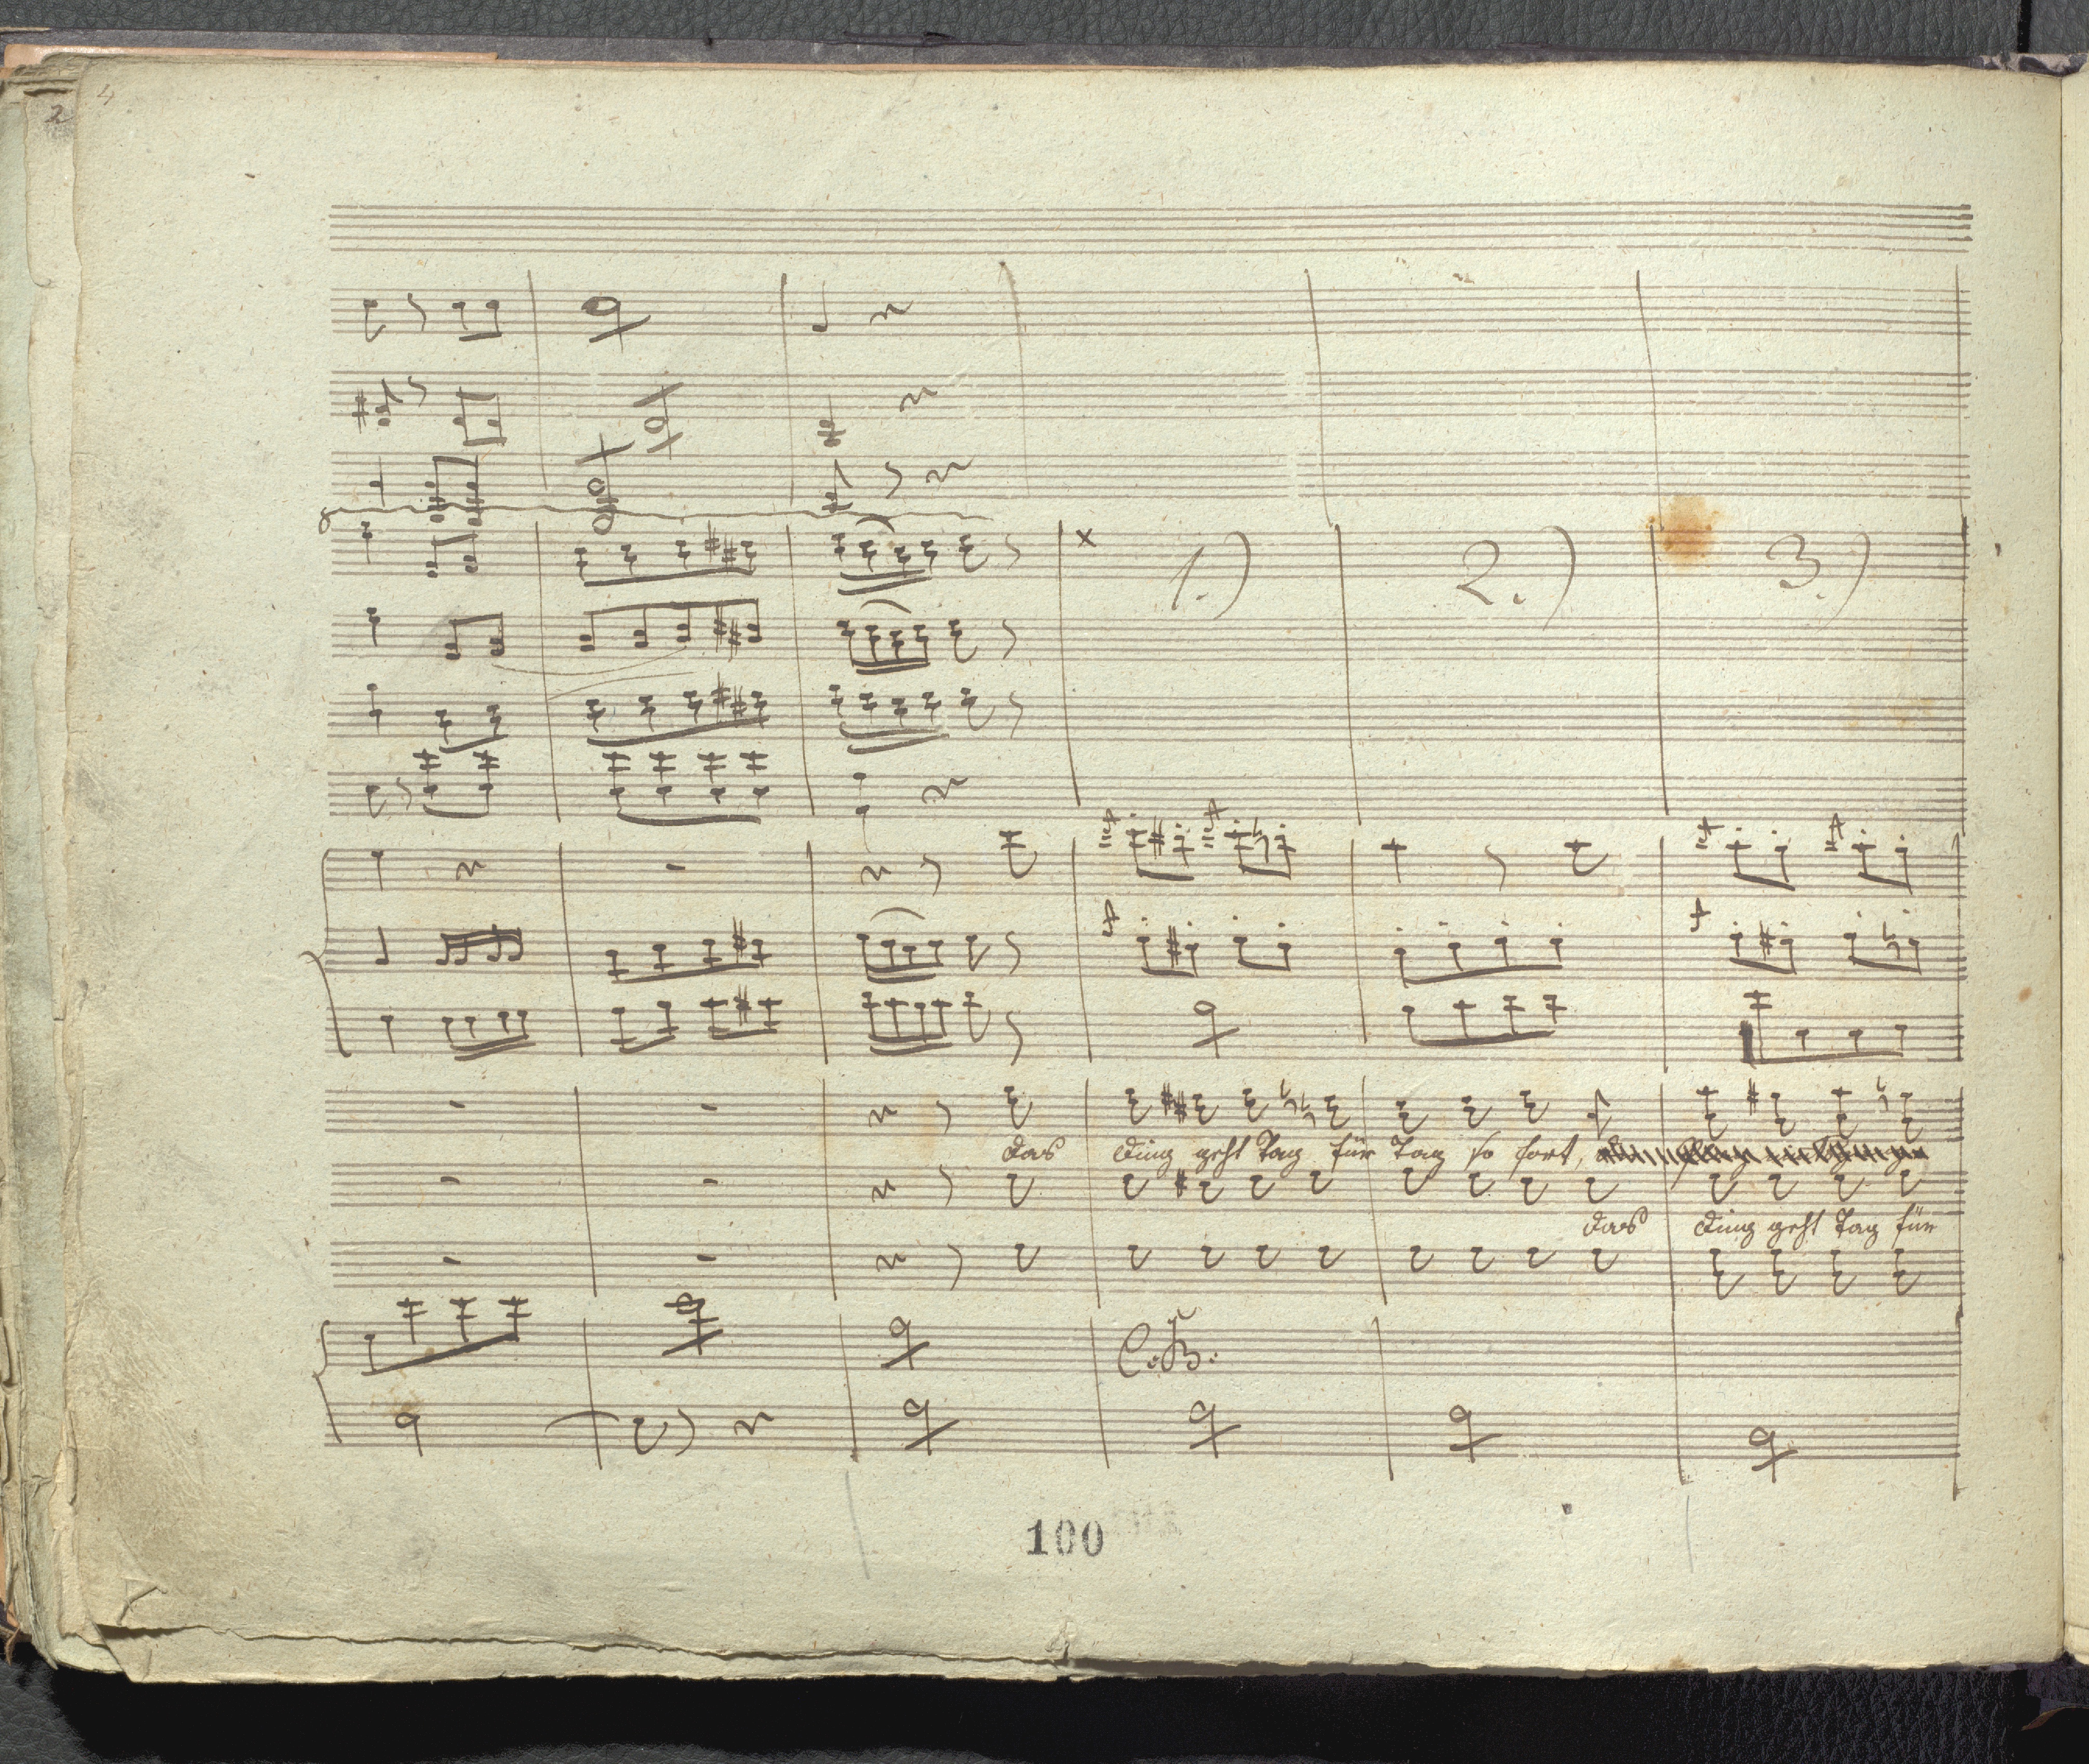 2
4
8
x 1.) 2.) 3.)
das Ding geht Tag für Tag so fort,
das Ding geht Tag für
C. B.
100